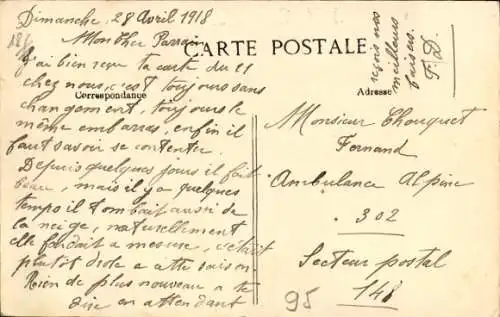 Dimanche, 28 Avril 1918
Mon cher Parrain
CARTE POSTALE
J'ai bien reçu ta carte du 21
chez nous, c'est toujours sans
Correspondance
changement, toujours le
même embarras, enfin il
faut savoir se contenter.
Depuis quelques jours il fait
beau, mais il y a quelques
temps il tombait aussi de
la neige, naturellement
elle fondait a mesure, c'était
plutôt drole a cette saison.
Rien de plus nouveau a te
dire en attendant
reçois nos
meilleurs
baisers.
F. D.
Adresse
Monsieur Chouquet
Fernand
Ambulance Alpine
302
Secteur postal
148
95